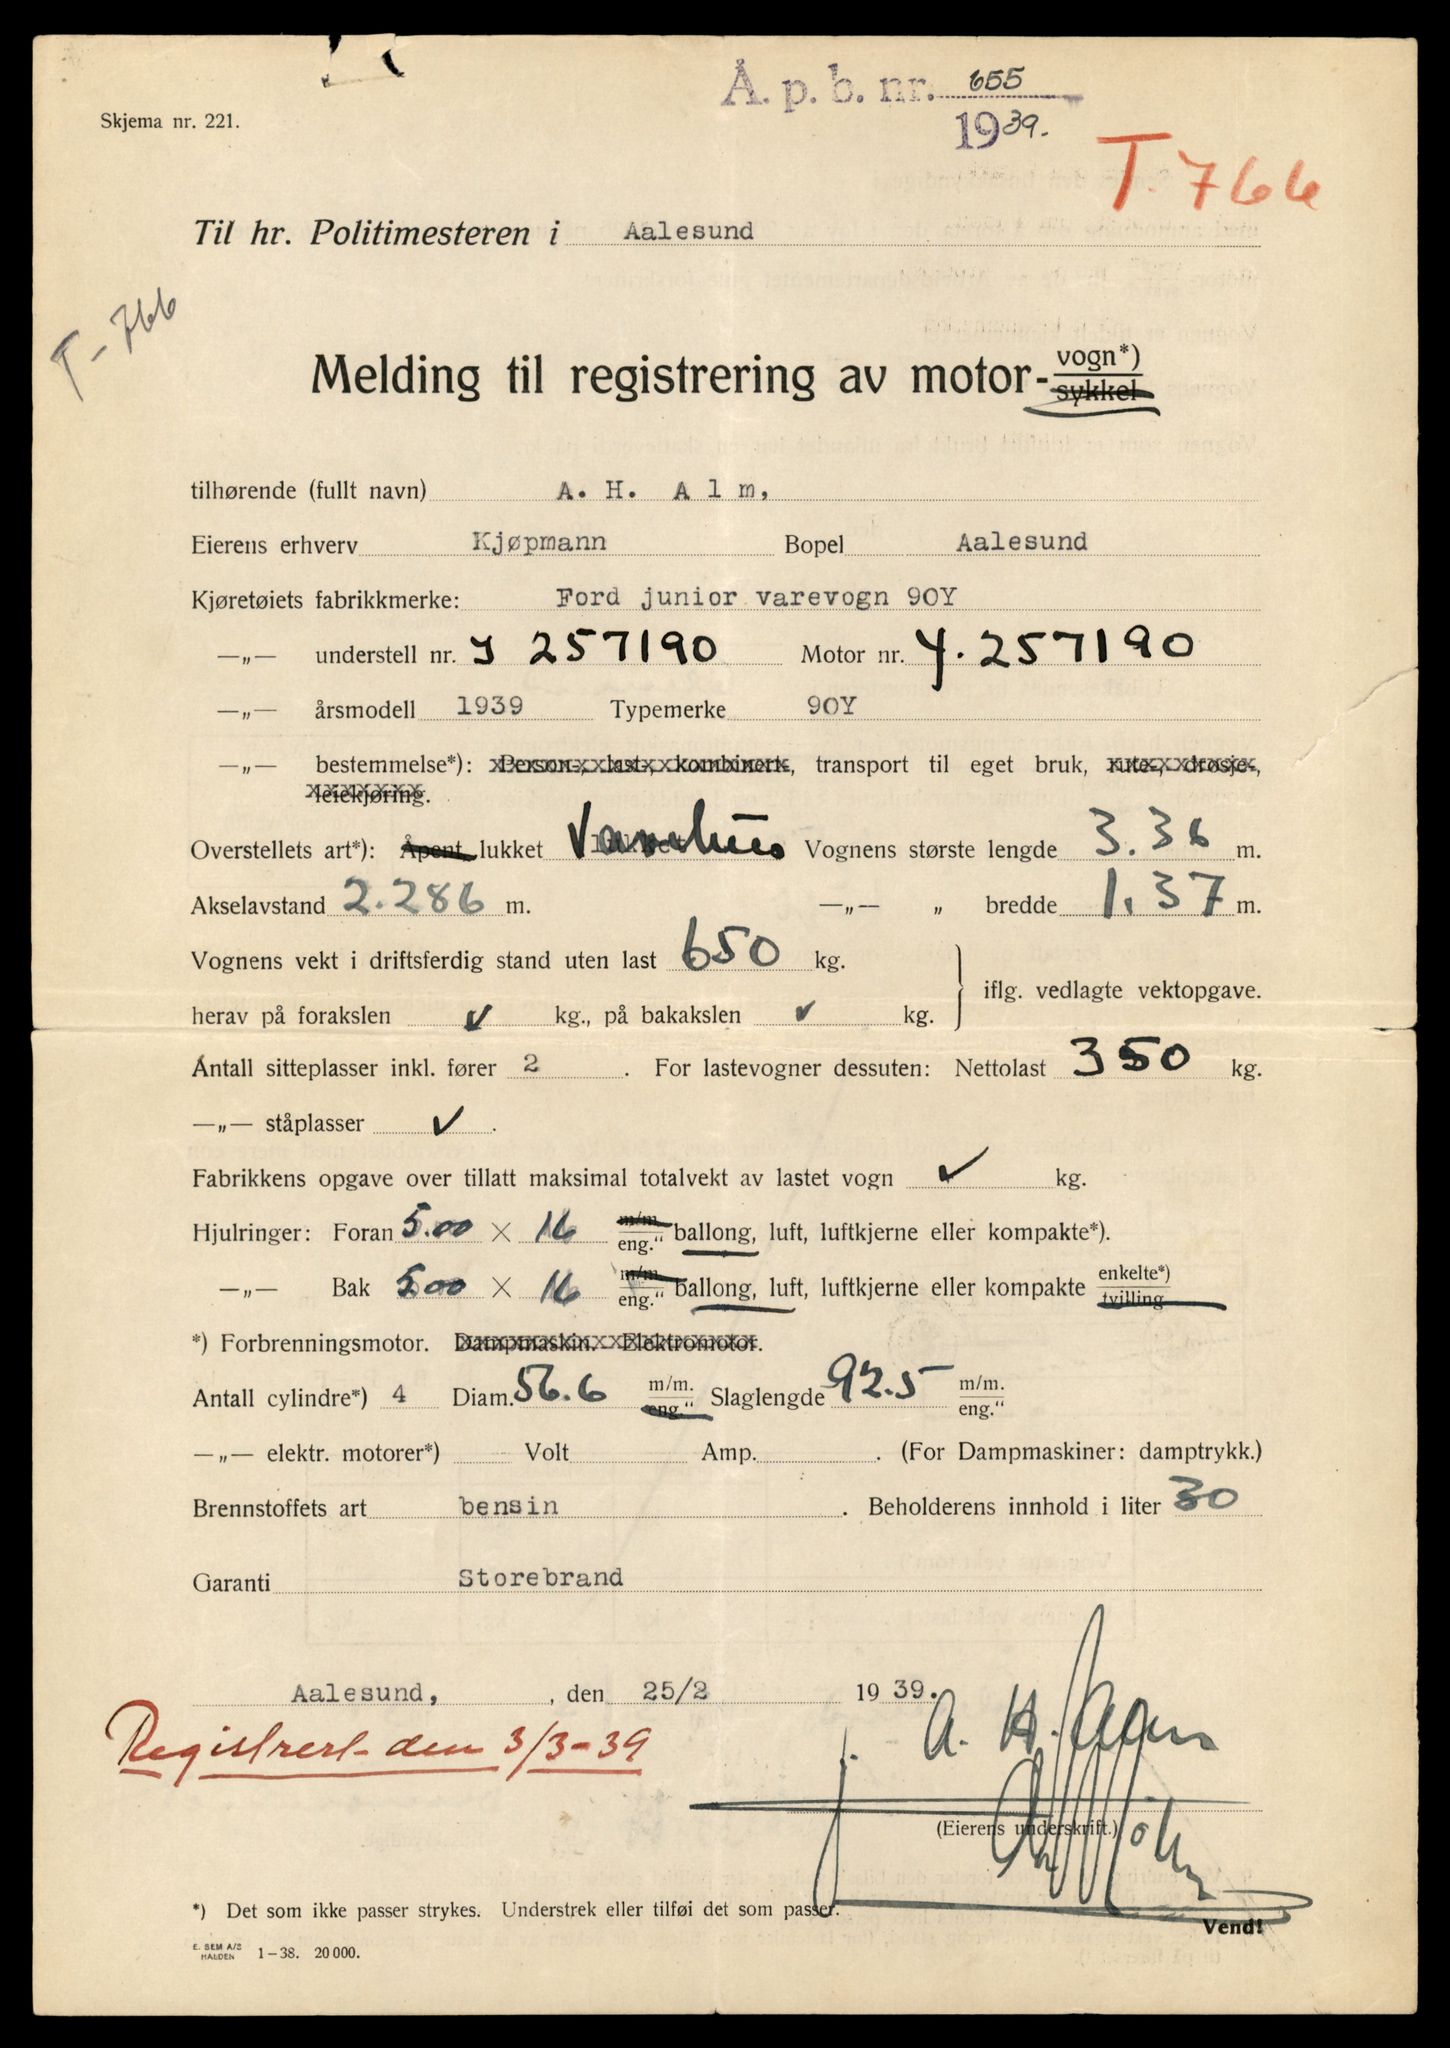 Å. p. b. nr. 655
1939.
Skjema nr. 221.
T. 766
Til hr. Politimesteren i Aalesund
T-766
Melding til registrering av motor- vogn*)
sykkel
tilhørende (fullt navn) A. H. Alm,
Eierens erhverv Kjøpmann Bopel Aalesund
Kjøretøiets fabrikkmerke: Ford junior varevogn 90Y
—„— understell nr. Y 257190 Motor nr. Y. 257190
—„— årsmodell 1939 Typemerke 90Y
—„— bestemmelse*): Person-, last-, kombinert-, transport til eget bruk, rute-, drosje-,
leiekjøring.
Overstellets art*): Åpent, lukket Varehus Vognens største lengde 3.36 m.
Akselavstand 2.286 m. —„— „ bredde 1.37 m.
Vognens vekt i driftsferdig stand uten last 650 kg.
iflg. vedlagte vektopgave.
herav på forakslen ✓ kg., på bakakslen ✓ kg.
Antall sitteplasser inkl. fører 2. For lastevogner dessuten: Nettolast 350 kg.
—„— ståplasser ✓.
Fabrikkens opgave over tillatt maksimal totalvekt av lastet vogn ✓ kg.
Hjulringer: Foran 5.00 × 16 m/m. eng.“ ballong, luft, luftkjerne eller kompakte*).
—„— Bak 5.00 × 16 m/m. eng.“ ballong, luft, luftkjerne eller kompakte enkelte*) tvilling
*) Forbrenningsmotor. Dampmaskin. Elektromotor.
Antall cylindre*) 4 Diam. 56.6 m/m. eng.“ Slaglengde 92.5 m/m. eng.“
—„— elektr. motorer*) Volt Amp. . (For Dampmaskiner: damptrykk.)
Brennstoffets art bensin . Beholderens innhold i liter 30
Garanti Storebrand
Aalesund, , den 25/2 1939.
Registrert den 3/3-39
A. H. Alm
(Eierens underskrift.)
*) Det som ikke passer strykes. Understrek eller tilføi det som passer.
Vend!
E. SEM A/S
HALDEN 1-38. 20 000.